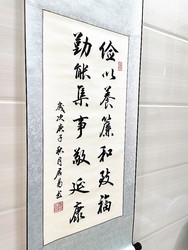 儉以養廉和致福
勤能集事敬延康
歲次庚子秋月